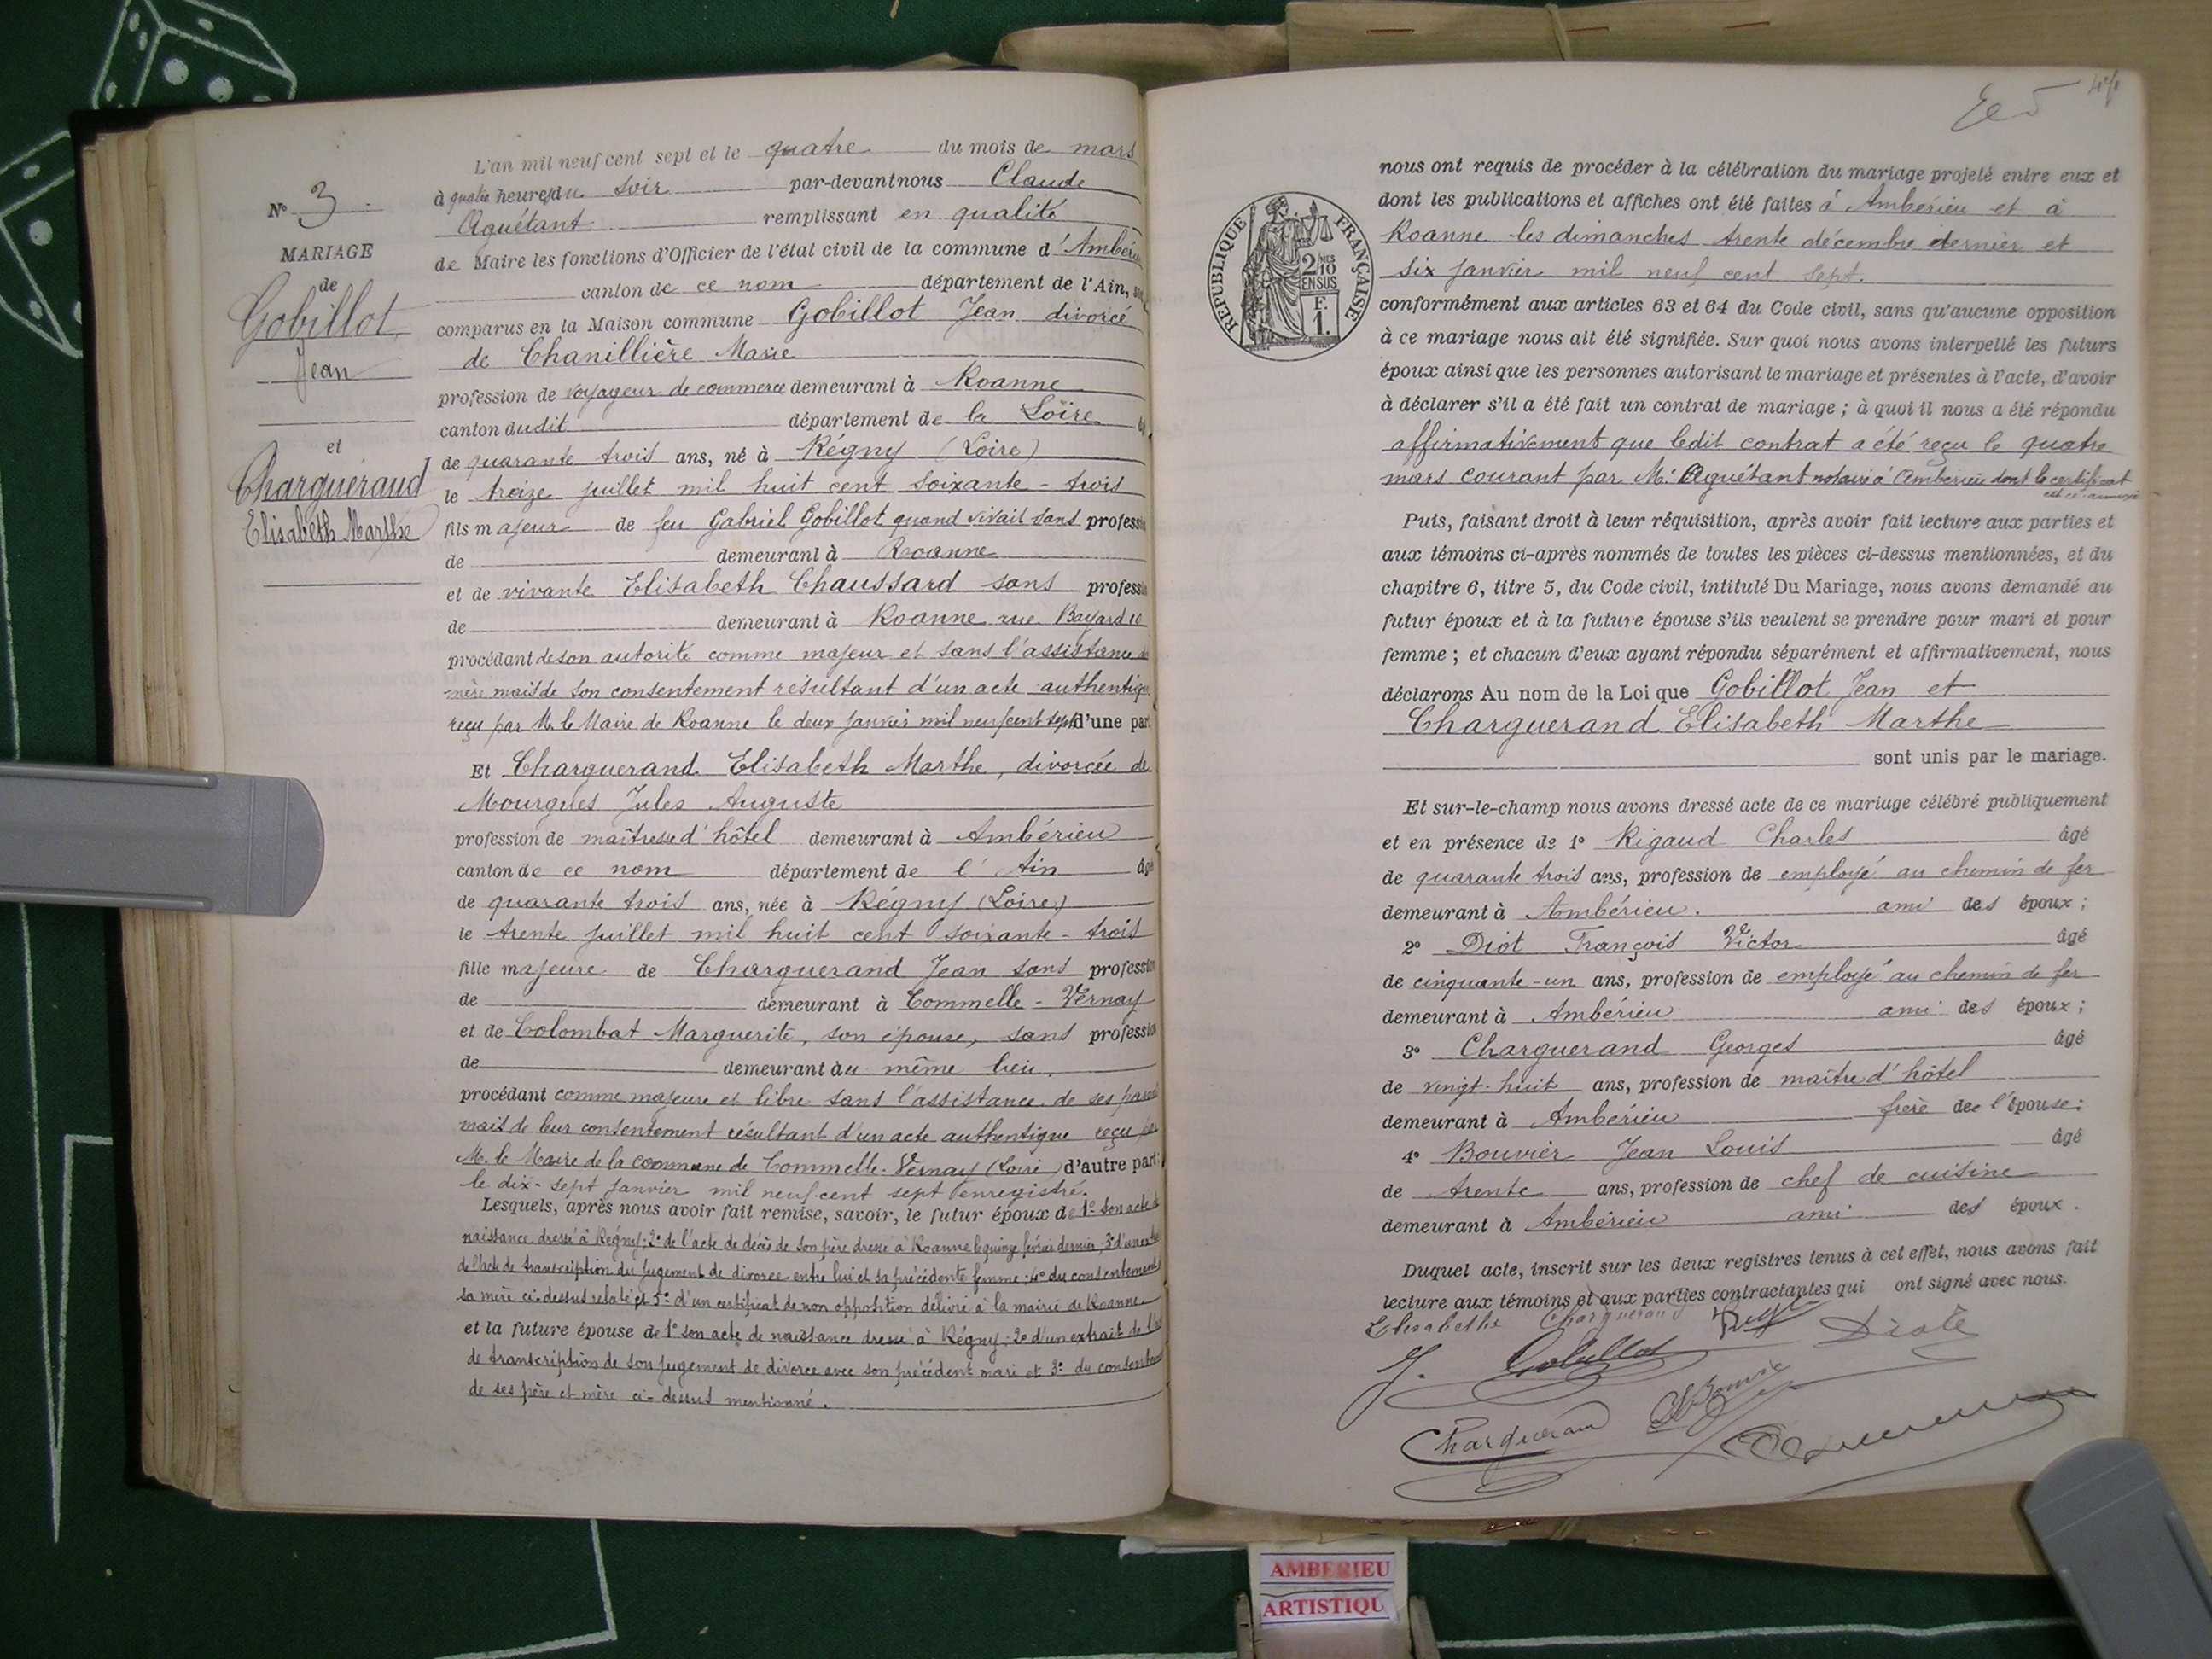 L'an mil neuf cent sept et le quatre du mois de mars
à quatre heures du soir par-devant nous Claude
Aguétant remplissant en qualité
de Maire les fonctions d'Officier de l'état civil de la commune d'Ambérieu
canton de ce nom département de l'Ain,
comparus en la Maison commune Gobillot Jean divorcé
de Chanillière Marie
profession de voyageur de commerce demeurant à Roanne
canton dudit département de la Loire
de quarante trois ans, né à Régny (Loire)
le treize juillet mil huit cent soixante-trois
fils majeur de feu Gabriel Gobillot quand vivait sans profession
de demeurant à Roanne
et de vivante Elisabeth Chaussard sans profession
de demeurant à Roanne rue Bayard 10
procédant de son autorité comme majeur et sans l'assistance
mère mais de son consentement résultant d'un acte authentique
reçu par M. le Maire de Roanne le deux janvier mil neuf cent sept d'une part
Et Charguerand Elisabeth Marthe, divorcée de
Mourgues Jules Auguste
profession de maîtresse d'hôtel demeurant à Ambérieu
canton de ce nom département de l'Ain âgé
de quarante trois ans, née à Régny (Loire)
le trente juillet mil huit cent soixante-trois
fille majeure de Charguerand Jean sans profession
de demeurant à Commelle-Vernay
et de Colombat Marguerite, son épouse, sans profession
de demeurant au même lieu.
procédant comme majeure et libre sans l'assistance de ses parents
mais de leur consentement résultant d'un acte authentique reçu par
M. le Maire de la commune de Commelle-Vernay (Loire) d'autre part;
le dix-sept janvier mil neuf cent sept enregistré.
Lesquels, après nous avoir fait remise, savoir, le futur époux de 1° son acte de
naissance dressé à Régny; 2° de l'acte de décès de son père dressé à Roanne le quinze février dernier, 3° d'un extrait
de l'acte de transcription du jugement de divorce entre lui et sa précédente femme; 4° du consentement
sa mère ci-dessus relaté et 5° d'un certificat de non opposition délivré à la mairie de Roanne.
et la future épouse de 1° son acte de naissance dressé à Régny; 2° d'un extrait de l'acte
de transcription de son jugement de divorce avec son précédent mari et 3° du consentement
de ses père et mère ci-dessus mentionné.
N° 3.
MARIAGE
de
Gobillot
Jean
et
Charguéraud
Elisabeth Marthe
nous ont requis de procéder à la célébration du mariage projeté entre eux et
dont les publications et affiches ont été faites à Ambérieu et à
Roanne les dimanches trente décembre dernier et
six janvier mil neuf cent sept.
conformément aux articles 63 et 64 du Code civil, sans qu'aucune opposition
à ce mariage nous ait été signifiée. Sur quoi nous avons interpellé les futurs
époux ainsi que les personnes autorisant le mariage et présentes à l'acte, d'avoir
à déclarer s'il a été fait un contrat de mariage ; à quoi il nous a été répondu
affirmativement que ledit contrat a été reçu le quatre
mars courant par Me Aguétant notaire à Ambérieu dont le certificat
est ci-annexé
Puis, faisant droit à leur réquisition, après avoir fait lecture aux parties et
aux témoins ci-après nommés de toutes les pièces ci-dessus mentionnées, et du
chapitre 6, titre 5, du Code civil, intitulé Du Mariage, nous avons demandé au
futur époux et à la future épouse s'ils veulent se prendre pour mari et pour
femme ; et chacun d'eux ayant répondu séparément et affirmativement, nous
déclarons Au nom de la Loi que Gobillot Jean et
Charguerand Elisabeth Marthe
sont unis par le mariage.
Et sur-le-champ nous avons dressé acte de ce mariage célébré publiquement
et en présence de 1° Rigaud Charles âgé
de quarante trois ans, profession de employé au chemin de fer
demeurant à Ambérieu. ami des époux ;
2° Diot François Victor âgé
de cinquante-un ans, profession de employé au chemin de fer
demeurant à Ambérieu ami des époux ;
3° Charguerand Georges âgé
de vingt-huit ans, profession de maître d'hôtel
demeurant à Ambérieu frère de l'épouse;
4° Bouvier Jean Louis âgé
de trente ans, profession de chef de cuisine
demeurant à Ambérieu ami des époux.
Duquel acte, inscrit sur les deux registres tenus à cet effet, nous avons fait
lecture aux témoins et aux parties contractantes qui ont signé avec nous.
Elisabethe Charguéraud
J. Gobillot
RÉPUBLIQUE FRANÇAISE
2/10
EN SUS
F.
1.
AMBERIEU
ARTISTIQU